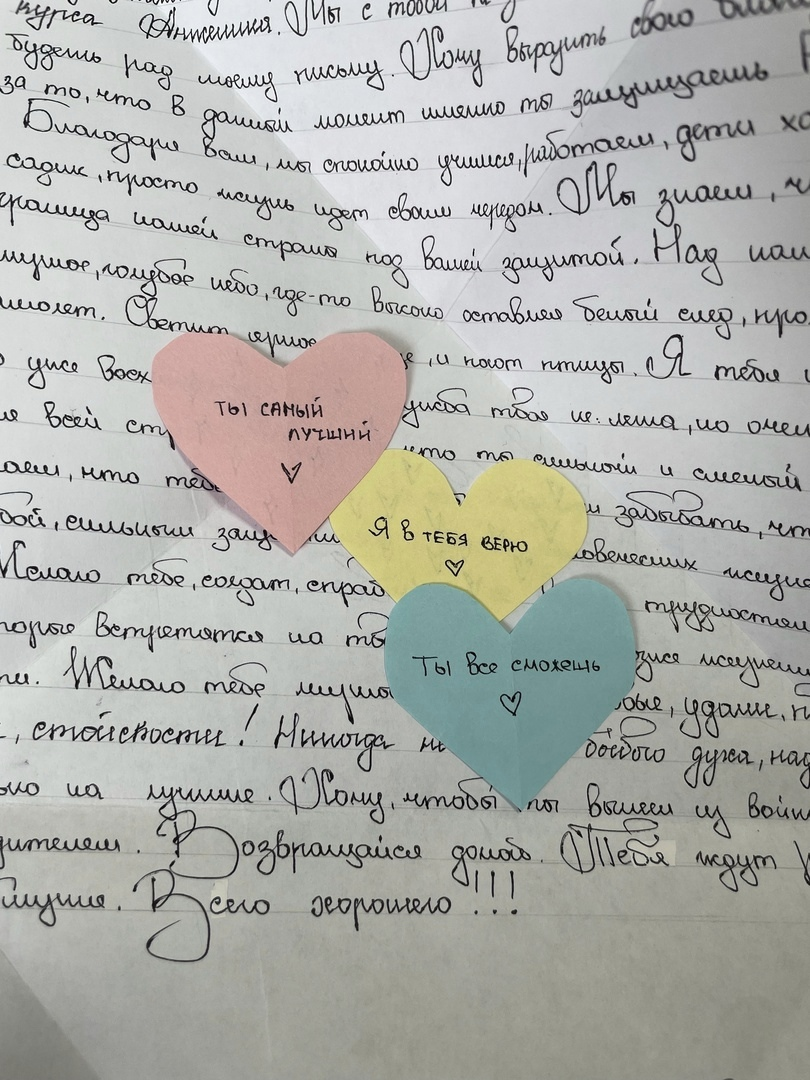 курса Анжелика. Мы с тобой
будешь рад моему письму. Хочу выразить свою
за то, что в данный момент именно ты защищаешь
Благодаря Вам, мы спокойно учимся, работаем, дети хо
садик, просто жизнь идет своим чередом. Мы знаем, ч
граница нашей страны под вашей защитой. Над наш
мирное, голубое небо, где-то высоко оставляя белый след, про
молет. Светит яркое е, и поют птицы. Я тебя
о уже Воех
я всей ст ужба твоя не легка, но очен
аем, что тебе что ты сильный и смелый
бой, сильным защи и забывать, что
Желаю тебе, солдат, справ ловеческих
торые встретятся на тво трудностями
ти. Желаю тебе мирно
, стойкости! Никогда не боевого духа, над
ко на лучшее. Хочу, чтобы ты вышел из войны
дителем. Возвращайся домой. Тебя ждут
Всего хорошего!!!
ТЫ САМЫЙ
ЛУЧШИЙ
Я В ТЕБЯ ВЕРЮ
Ты все сможешь